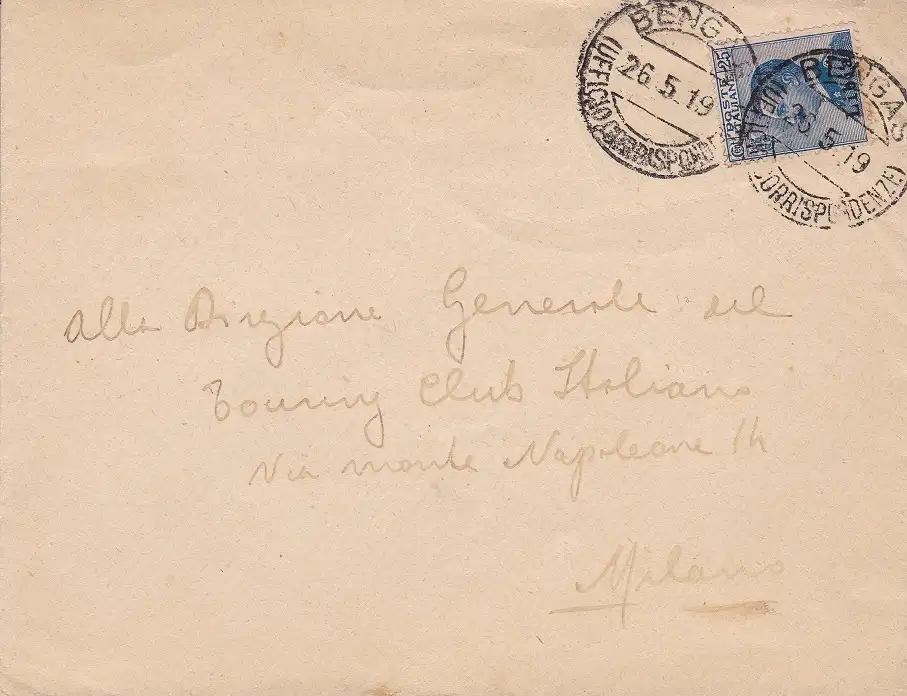 BENGAS
(UFFICIO CORRISPONDENZE)
26.5.19
POSTE ITALIANE
25
BENGAS
(UFFICIO CORRISPONDENZE)
26.5.19
Alla Direzione Generale del
Touring Club Italiano
Via monte Napoleone 14
Milano